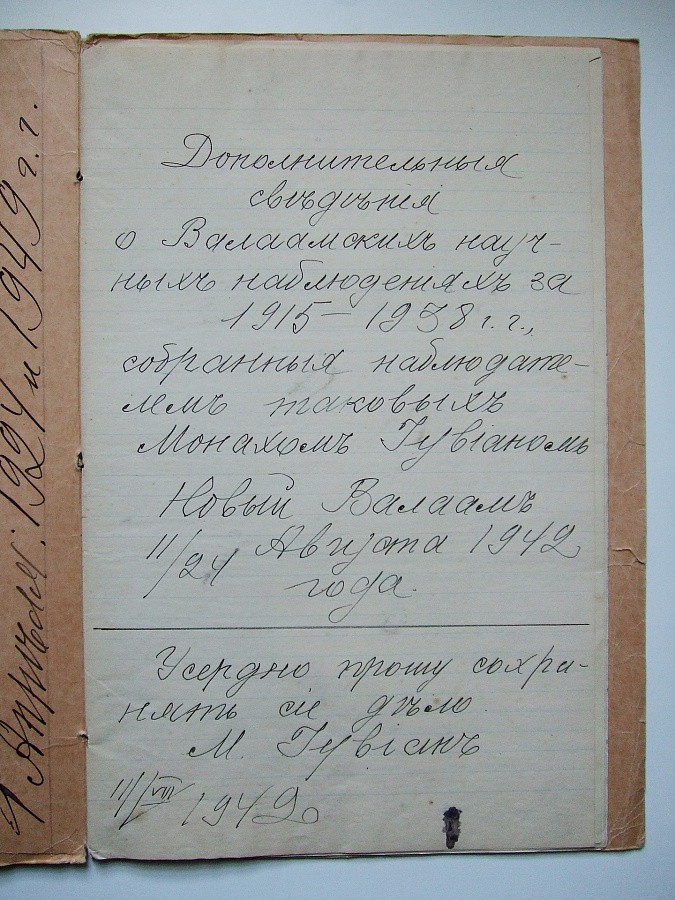 Дополнительныя
свѣдѣнія
о Валаамскихъ науч-
ныхъ наблюденіяхъ за
1915–1938 г. г.,
собранныя наблюдате-
лемъ таковыхъ
Монахомъ Іувіаномъ
Новый Валаамъ
11/24 Августа 1942
года.
Усердно прошу сохра-
нять сіе дѣло.
М. Іувіанъ
11/VIII 1942
1924 и 1949 г. г.